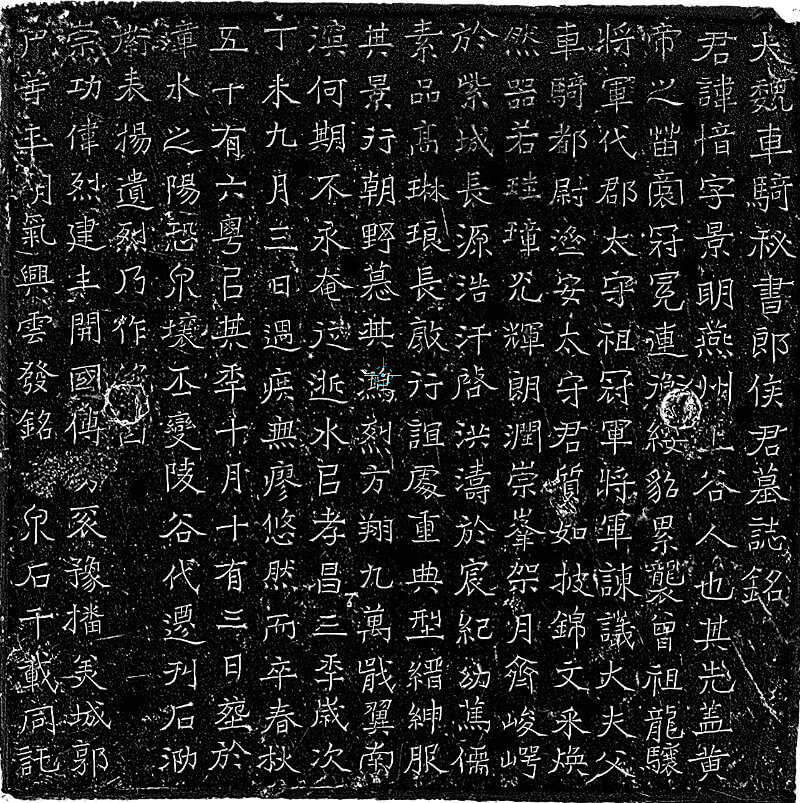 大魏車騎秘書郎侯君墓誌銘
君諱愔字景明燕州上谷人也其先蓋黃
帝之苗裔冠冕連綿綬貂累襲曾祖龍驤
將軍代郡太守祖冠軍將軍諫議大夫父
車騎都尉洛安太守君質如披錦文采煥
然器若珪璋光輝朗潤崇峯架月齊峻崿
於紫城長源浩汗啓洪濤於宸紀幼蔫儒
素品高琳琅長敦行誼處重典型縉紳服
其景行朝野慕其鴻烈方翔九萬戢翼南
溟何期不永奄從逝水以孝昌三年歲次
丁未九月三日遇疾無廖悠然而卒春秋
五十有六粤以其年十月十有三日葬於
漳水之陽恐泉壤丕變陵谷代遷刊石泐
銜表揚遺烈乃作銘曰
宗功偉烈建丰開國傳家豫播美城郭
善年明氣興雲發銘泉石千載同託